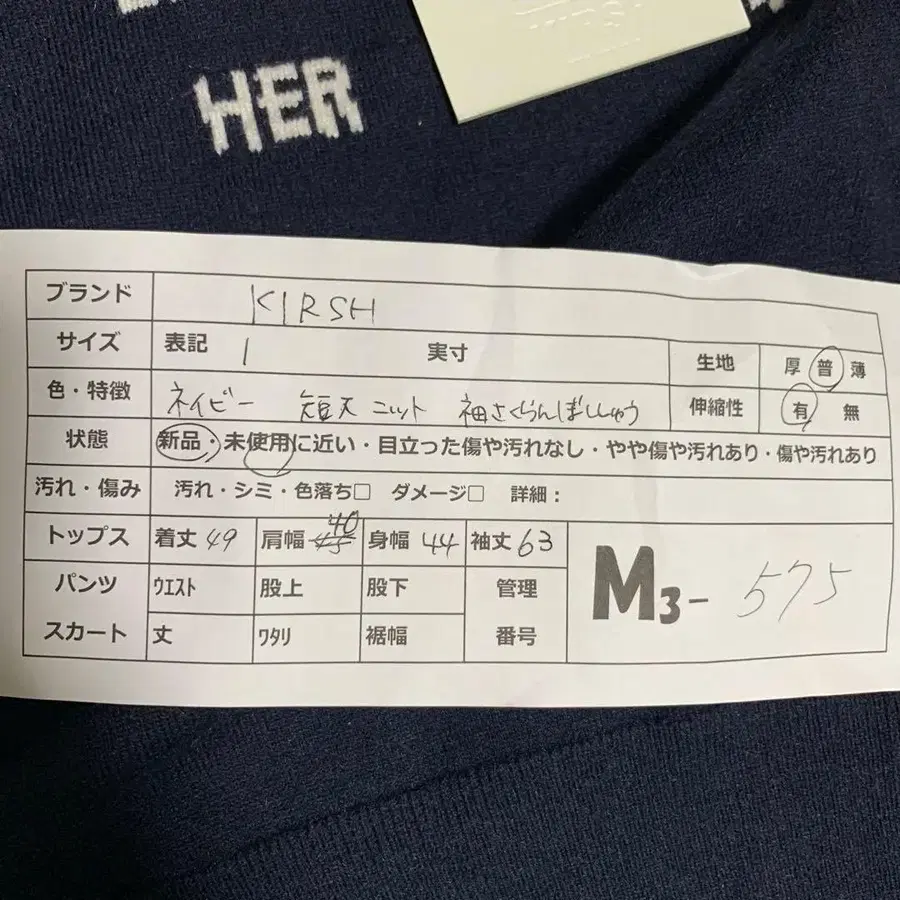 HER
ブランド KIRSH
サイズ 表記 1 実寸 生地 厚 普 薄
色・特徴 ネイビー 短丈ニット 袖さくらんぼししゅう 伸縮性 有 無
状態 新品・未使用に近い・目立った傷や汚れなし・やや傷や汚れあり・傷や汚れあり
汚れ・傷み 汚れ・シミ・色落ち□ ダメージ□ 詳細：
トップス 着丈 49 肩幅 45 40 身幅 44 袖丈 63
パンツ ウエスト 股上 股下 管理 M3- 575
スカート 丈 ワタリ 裾幅 番号